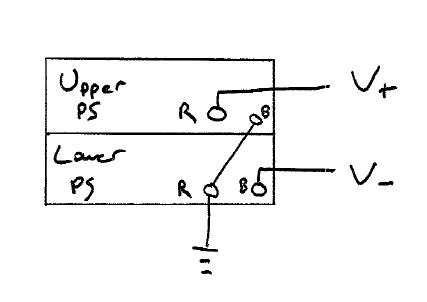 Upper
PS
R
B
V+
Lower
PS
R
B
V-